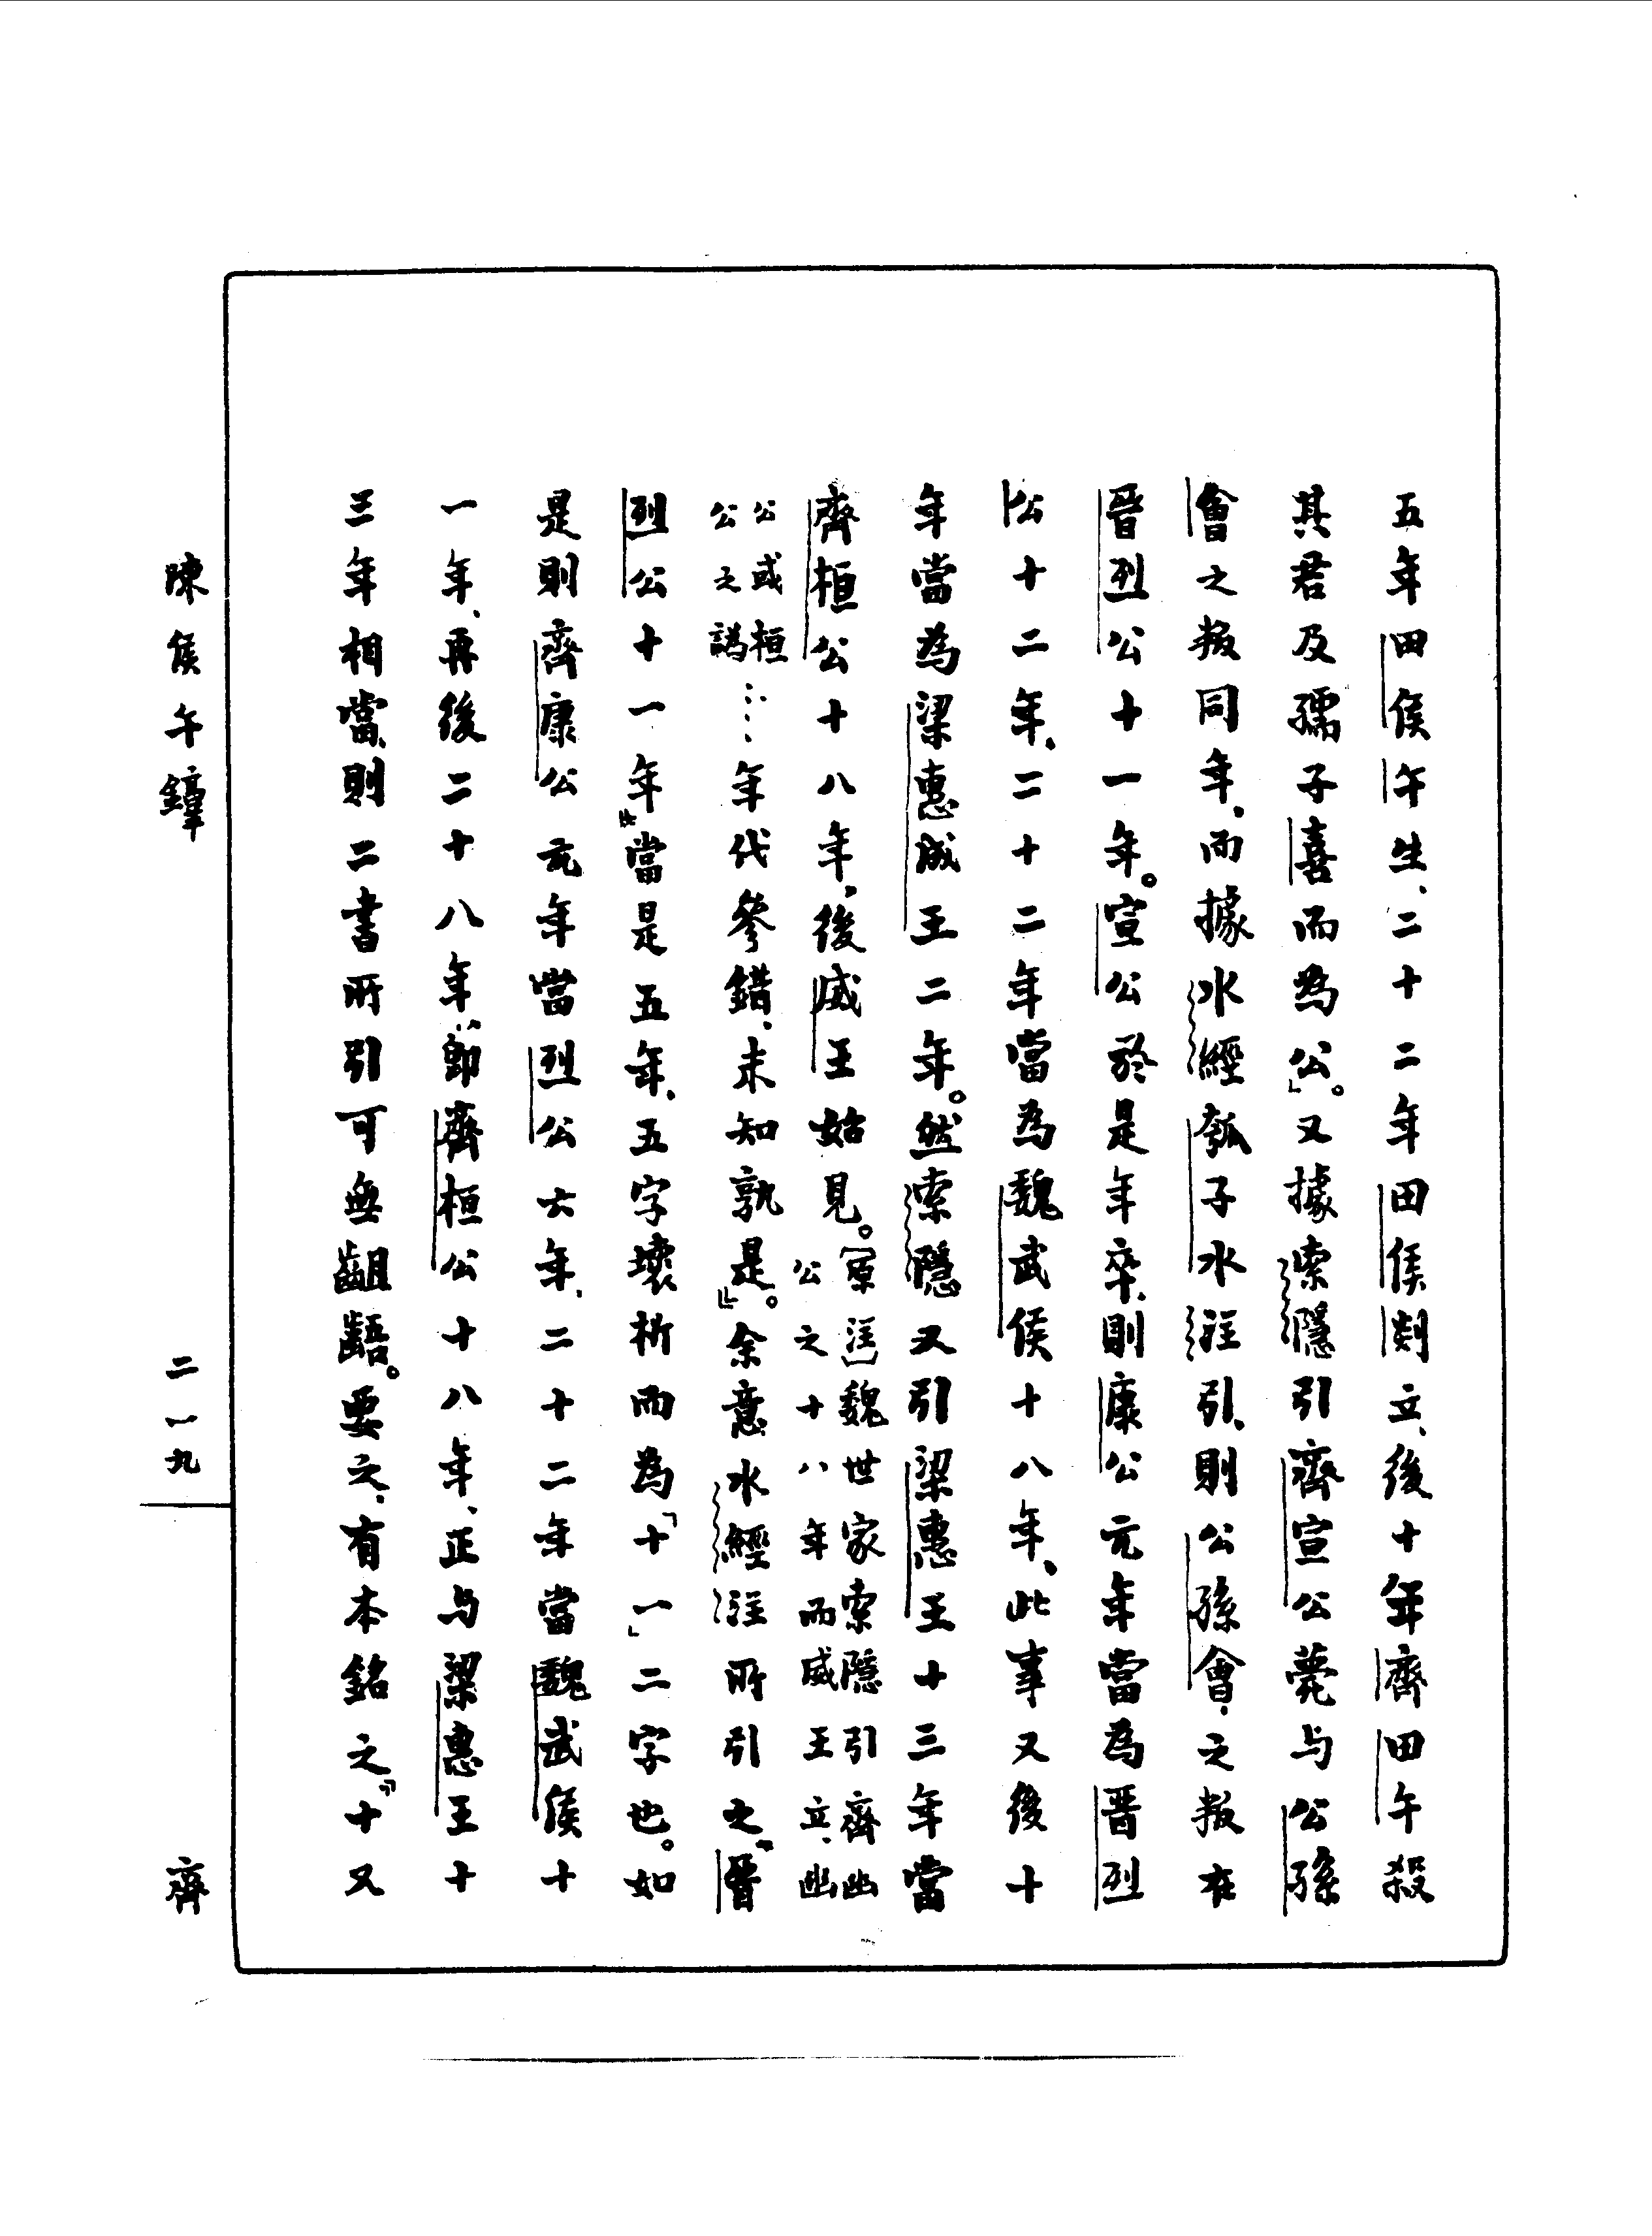 五年田侯午生、二十二年田侯剡立、後十年齊田午殺
其君及孺子喜而為公」。又據索隱引齊宣公薨与公孫
會之叛同年、而據水經瓠子水注引、則公孫會之叛在
晉烈公十一年。宣公於是年卒、則康公元年當為晉烈
公十二年、二十二年當為魏武侯十八年、此事又後十
年當為梁惠成王二年。然索隱又引梁惠王十三年當
齊桓公十八年、後威王始見。〔原注〕魏世家索隱引齊幽公之十八年而威王立、幽
公或桓公之譌……年代參錯、未知孰是』。余意水經注所引之『晉
烈公十一年』當是五年、五字壞析而為「十一」二字也。如
是則齊康公元年當烈公六年、二十二年當魏武侯十
一年、再後二十八年、即齊桓公十八年、正与梁惠王十
三年相當、則二書所引可無齟齬。要之、有本銘之『十又
陳侯午鐓
二一九
齊